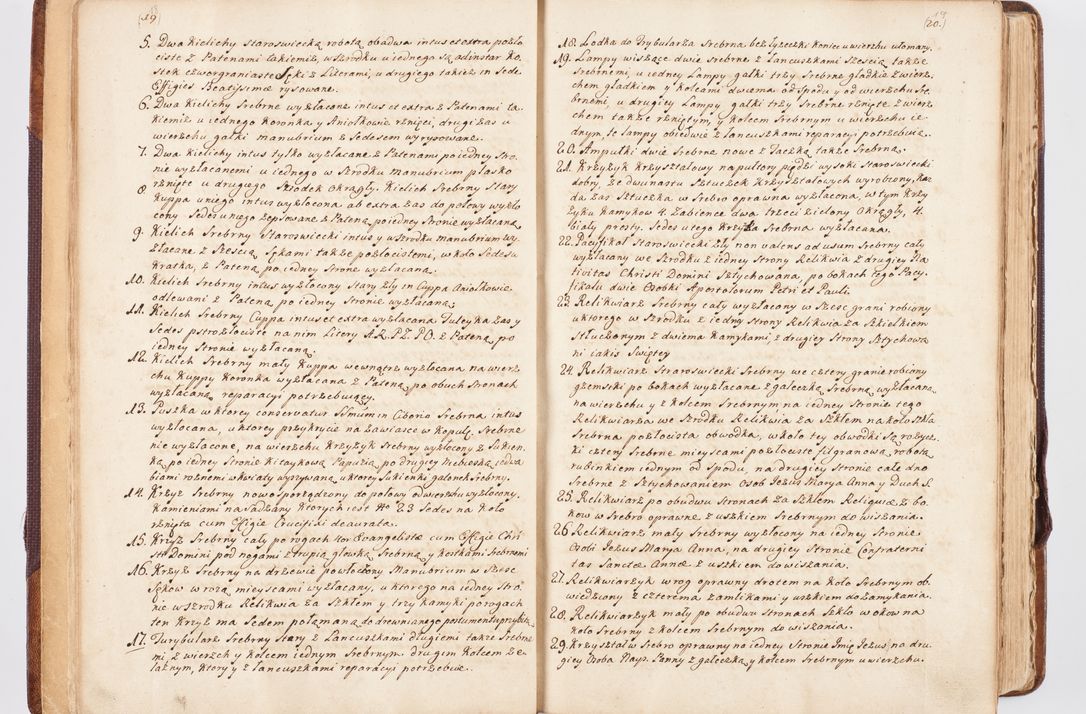 (19)
5. Dwa Kielichy staroswiecką robotą obadwa intus et extra pozło
ciste z Patenami takiemiż, wszrodku u iednego są adinstar Ko
stek czworgraniaste Sęki z Literami, u drugiego takież in Sede
Effigies Beatissimæ rysowane.
6. Dwa Kielichy Srebrne wyzłacane intus et extra z Patenami ta
kiemiż u iednego Koronka y Aniołkowie rznięci, drugi zas u
wierzchu gałki manubrium z Sedesem wyrysowane.
7. Dwa Kielichy intus tylko wyzłacane z Patenami po iedney stro
nie wyzłacanemi u iednego w szrodku manubrium płasko
rznięte u drugego szrodek okrągły.
8 Kielich Srebrny Stary
Kuppa u niego intus wyzłocona ab extra zas do połowy wyzło
cony Sedes u niego zepsowane z Pateną po iedney stronie wyzłacaną
9. Kielich Srebrny Staroswiecki intus y wszrodku manubrium wy
złacane z Szescią Sękami także pozłocistemi, w koło Sedesu
Kratka, z Pateną po iedney stronie wyzłacaną.
10. Kielich Srebrny intus wyzłocony Stary zły in Cuppa Aniołkowie
odlewani z Pateną po iedney stronie wyzłacaną,
11. Kielich Srebrny Cuppa intus et extra wyzłacana Tuleyka zas y
Sedes pstrozłociste na nim Litery A. R. P Z. P O. z Pateną po
iedney stronie wyzłacaną.
12. Kielich Srebrny mały Kuppa wewnątrz wyzłacana na wierz
chu Kuppy Koronka wyzłacana z Pateną po obuch stronach
wyzłacaną reparacyi potrzebuiący.
13. Puszka w ktorey conservatur SSmum in Ciborio Srebrna intus
wyzłocana, u ktorey przykrycie na zawiasce w Kopułę Srebrne
nie wyzłocone, na wierzchu Krzyżyk Srebrny wyzłocony z Sukien
ką po iedney stronie Kitaykową Papuzią po drugiey Niebieską iedwa
biami rożnemi w kwiaty wyszywaną u ktorey sukienki galonek Srebrny.
14. Krzyż Srebrny nowo sporządzony do połowy od wierzchu wyzłocony,
Kamieniami nasadzany ktorych iest No 23 Sedes na koło
rżnięta cum Effigie Crucifixi deaurata.
15. Krzyż Srebrny cały po rogach 4or Evangelistæ cum Effigie Chri
sti Domini pod nogami z trupią głowką Srebrną y kostkami Srebrnemi
16. Krzyż Srebrny na drzewie powłoczony Manubrium w Szesc
Sękow w rożą mieyscami wyzłacany, u ktorego na iedney stro
nie wszrodku Relikwia za Szkłem y trzy kamyki po rogach
ten Krzyż ma Sedem połamaną do drewnianego postumentu przybitą
17. Turybularz Srebrny Stary z Lancuszkami długiemi także Srebrne
mi, z wierzchy kołcem iednym Srebrnym drugim kołcem że
laznym, ktory y z Lancuszkami reparacyi potrzebuie.
19
(20.)
18. Lodka do Trybularza Srebrna bez łyżeczki koniec u wierzchu ułomany.
19. Lampy wiszące dwie Srebrne z Lancuszkami Szescią także
Srebrnemi, u iedney Lampy gałki trzy Srebrne gładkie z wierz
chem gładkiem y kołcami dwiema od spodu y od wierzchu Sre
brnemi, u drugiey Lampy gałki trzy Srebrne rznięte z wierz
chem także rżniętym, y kołcem Srebrnym u wierzchu ie
dnym, te Lampy obiedwie z Lancuszkami reparacyi potrzebuią.
20. Ampułki dwie Srebrne nowe z Taczką także Srebrną.
21. Krzyżyk Krzyształowy na pułtory piędzi wysoki Staroswiecki
dobry, ze dwunastu Sztuczek Krzyształowych wyrobiony, Kaz
da zas Sztuczka w Srebro oprawna wyzłacona, w tym Krzy
żyku Kamykow 4. Zabience dwa trzeci zielony Okrągły, 4.
biały prosty. Sedes u tego Krzyżka Srebrna wyzłacana.
22. Pacyfikał Staroswiecki zły non valens ad usum Srebrny cały
wyzłacany we szrodku z iedney strony Relikwia z drugiey Na
tivitas Christi Domini Sztychowana, po bokach tego Pacy
fikału dwie Osobki Apostolorum Petri et Pauli.
23. Relikwiarz Srebrny cały wyzłacony w Szesc grani robiony
u ktorego w szrodku z iedny strony Relikwia za Szkiełkiem
stłuczonym z dwiema Kamykami, z drugiey strony Sztychowa
ni iakis Swięty
24. Relikwiarz Straroswiecki Srebrny we cztery granie robiony
gzemski po bokach wyzłacane z gałeczką Srebrną wyzłacaną
na wierzchu y z kołcem Srebrnym na iedney stronie tego
Relikwiarza we szrodku Relikwia za Szkłem na koło szkła
Srebrna pozłocista obwodka, w koło tey obwodki są rożycz
ki cztery Srebrne mieyscami pozłociste filgranową robotą
rubinkiem iednym od spodu, na drugiey stronie całe dno
Srebrne z Sztychowaniem Osob Jezus Marya Anna y Duch S.
25. Relikwiarz po obudwu stronach za Szkłem Reliquiæ z bo
kow w Srebro oprawne z uszkiem Srebrnym do wiszania.
26 Relikwiarz mały Srebrny wyzłocony na iedney stronie
Osobi Jezus Marya Anna, na drugiey stronie Confraterni
tas Sanctæ Annæ z uszkiem do wiszania.
27. Relikwiarzyk w rog oprawny drotem na koło Srebrnym ob
wiedziony z czterema zamlikami y uszkiem do zamykania.
28. Relikwiarzyk mały po obudwu stronach Szkło w okow na
koło Srebrny z kołcem Srebrnym do wiszania.
29. Krzyształ w Srebro oprawny na iedney stronie Imię Jezus, na dru
giey Osoba Nays: Panny z gałeczką y kołcem Srebrnym u wierzchu.